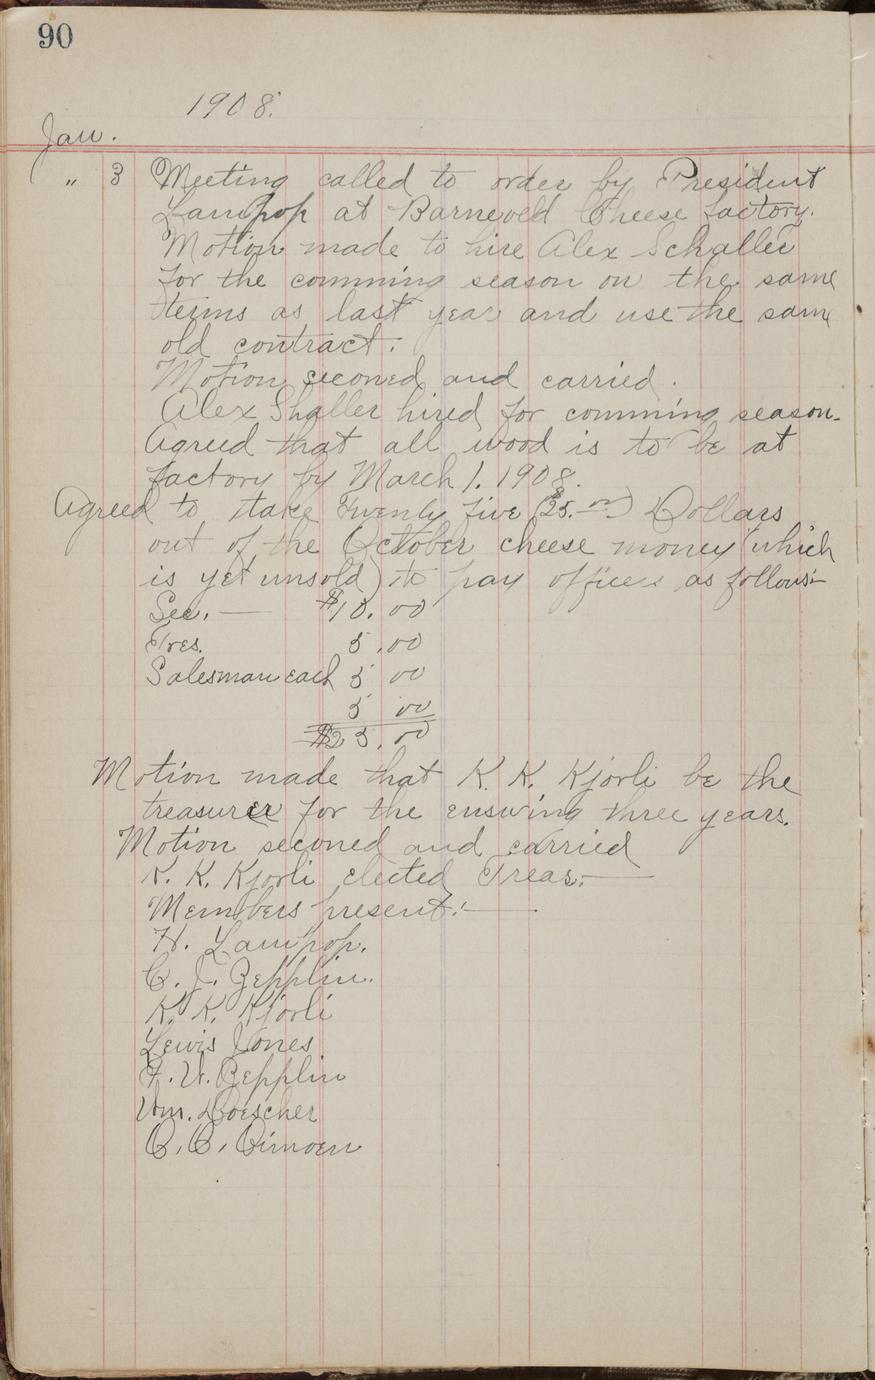 90
1908.
Jan.
" 3 Meeting called to order by President
Lampop at Barneveld Cheese factory.
Motion made to hire Alex Schaller
for the comming season on the same
terms as last year and use the same
old contract.
Motion seconed and carried.
Alex Shaller hired for comming season.
Agreed that all wood is to be at
factory by March 1. 1908.
Agreed to take Twenty five ($25.00) Dollars
out of the October cheese money (which
is yet unsold) to pay offices as follows:-
Sec. — $10.00
Tres. 5.00
Salesman each 5 00
5 00
$25.00
Motion made that K. K. Kjorli be the
treasurer for the ensuing three years.
Motion seconed and carried
K. K. Kjorli elected Treas.—
Members present:—
H. Lampop.
C. J. Zepplin.
K. K. Kjorli
Lewis Jones
F. W. Zepplin
Wm. Doescher
O. C. Oimoen